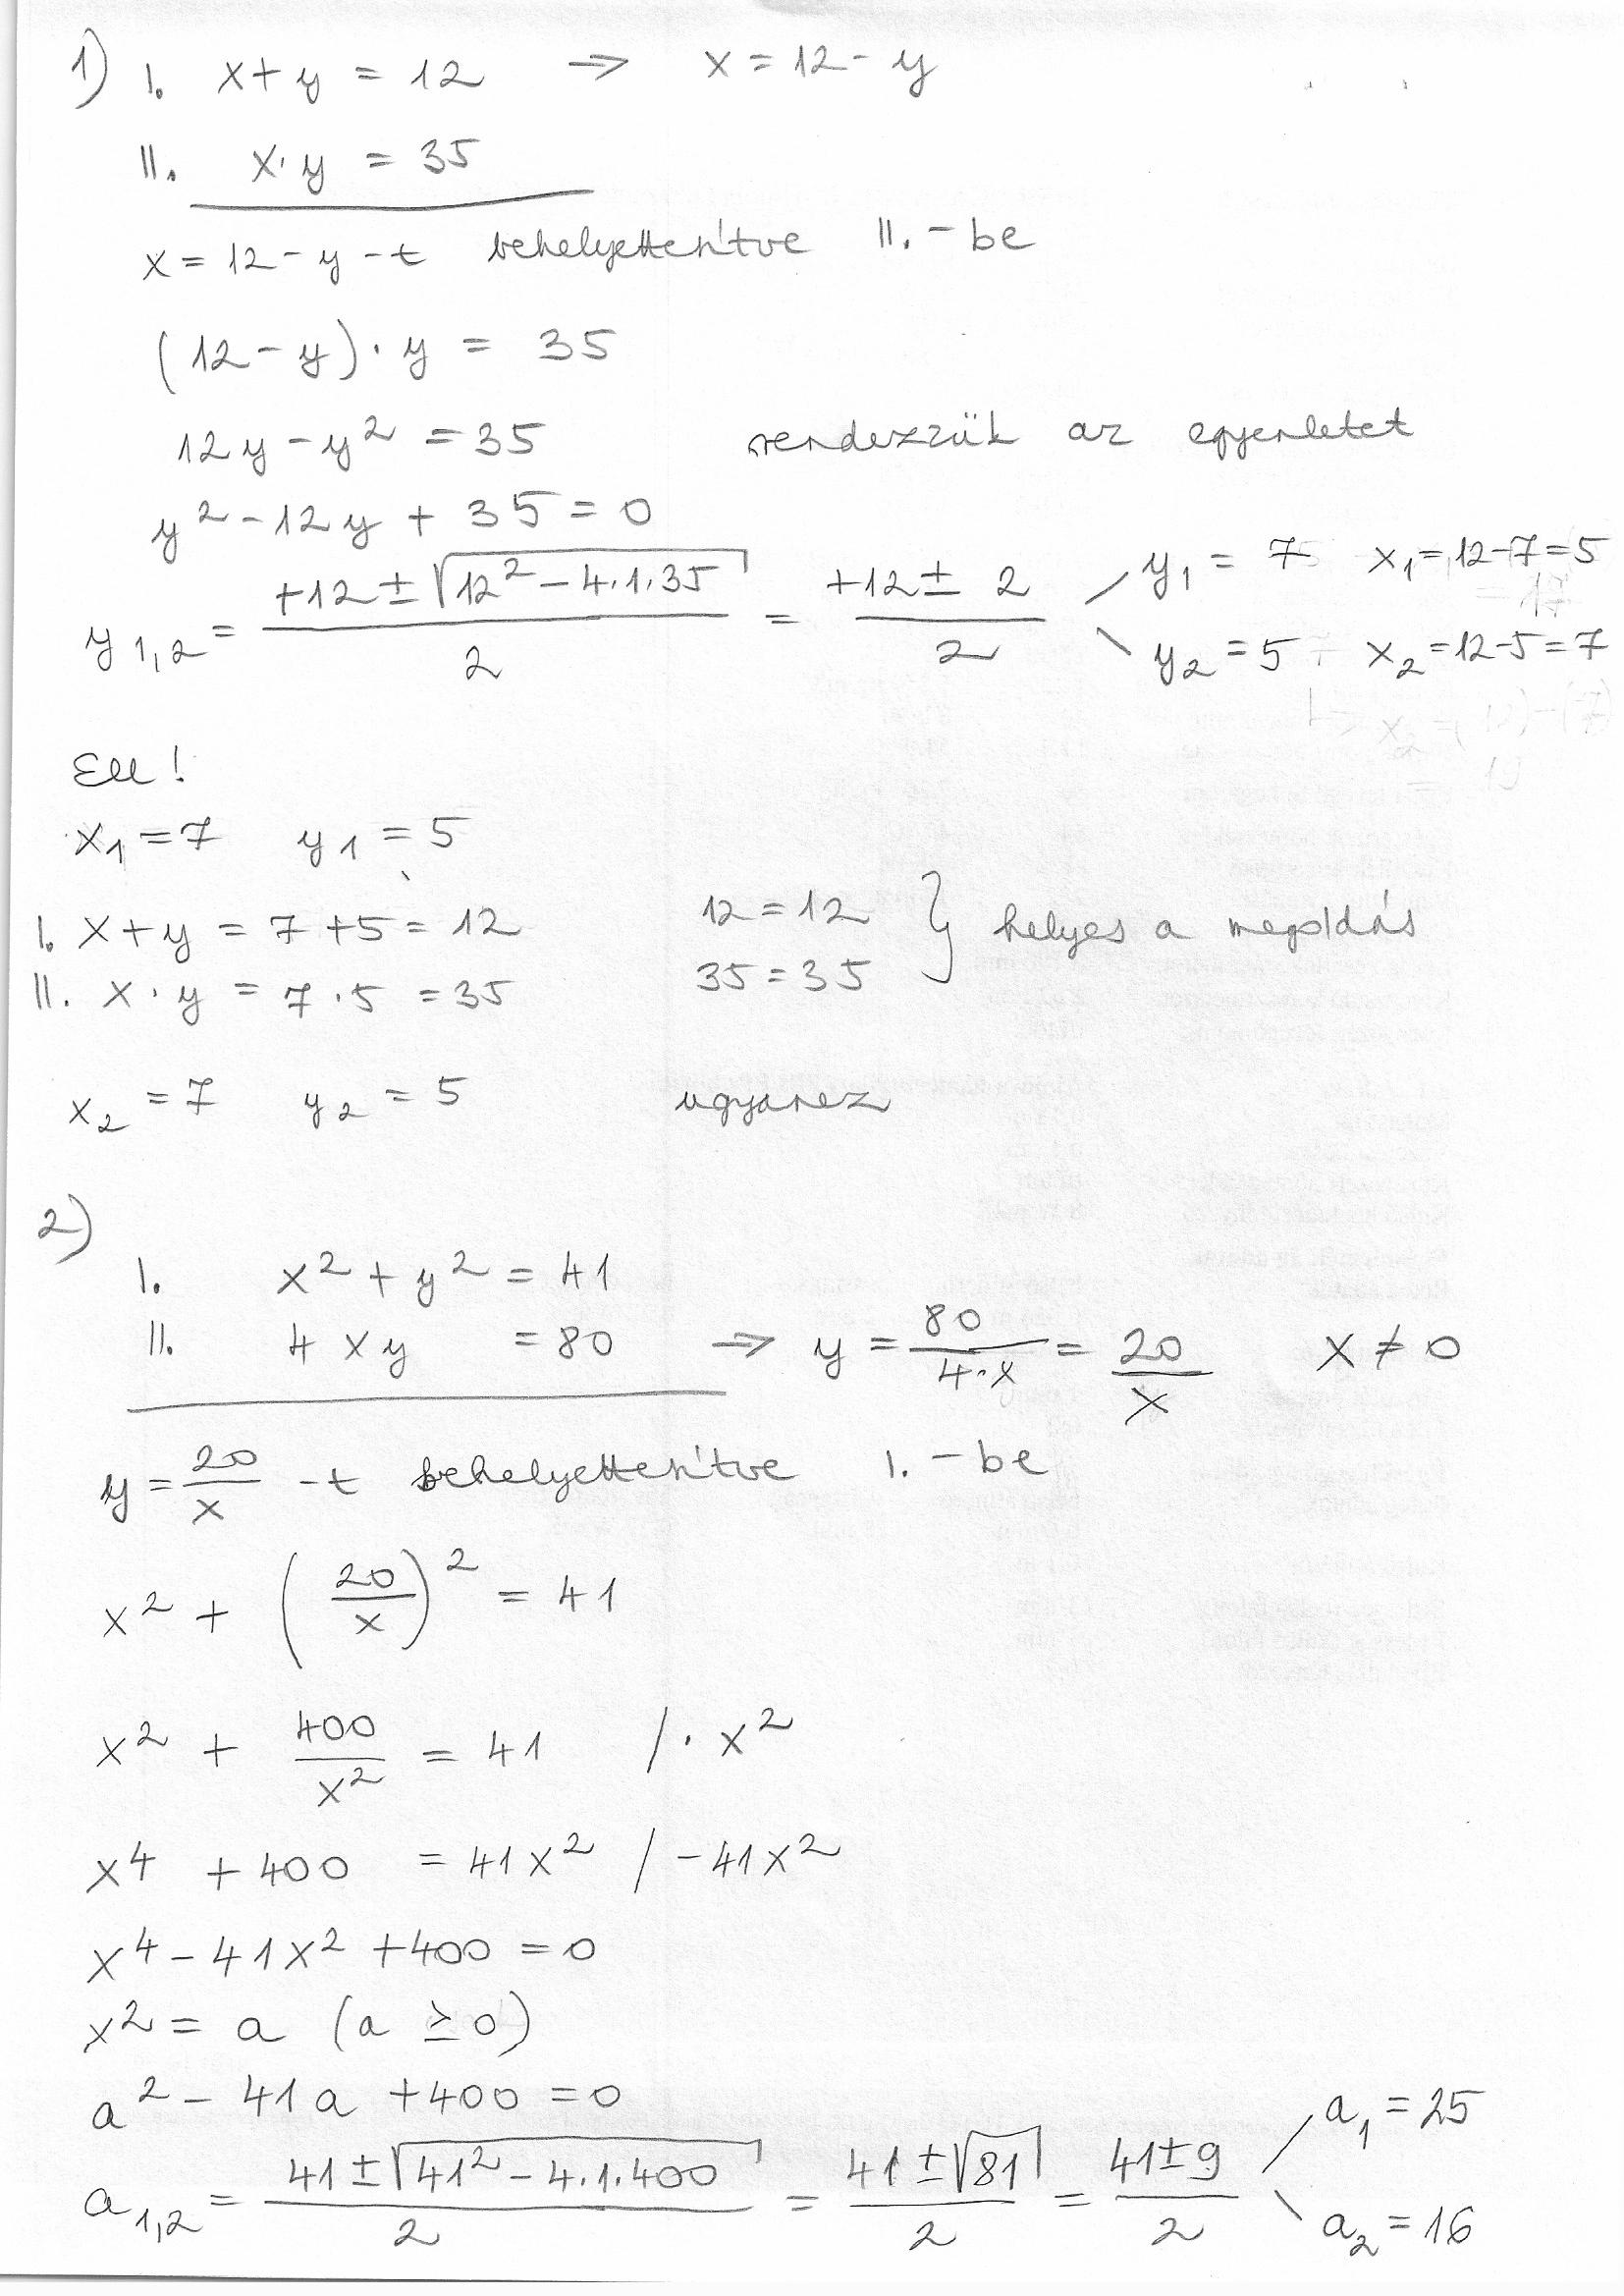 1) I. x+y = 12 → x = 12-y
II. x·y = 35
x = 12-y -t behelyettesítve II.-be
(12-y)·y = 35
12y-y² = 35 rendezzük az egyenletet
y²-12y+35=0
y1,2 = (+12±√(12²-4·1·35))/2 = (+12±2)/2 y1 = 7 x1=12-7=5
y2 = 5 x2=12-5=7
Ell!
x1=7 y1=5
I. x+y = 7+5 = 12 12=12 } helyes a megoldás
II. x·y = 7·5 = 35 35=35
x2=7 y2=5 ugyanez
2)
I. x²+y² = 41
II. 4xy = 80 → y = 80/(4·x) = 20/x x ≠ 0
y = 20/x -t behelyettesítve I.-be
x² + (20/x)² = 41
x² + 400/x² = 41 /·x²
x⁴ + 400 = 41x² /-41x²
x⁴-41x²+400=0
x² = a (a ≥ 0)
a²-41a+400=0
a1,2 = (41±√(41²-4·1·400))/2 = (41±√81)/2 = (41±9)/2 a1=25
a2=16